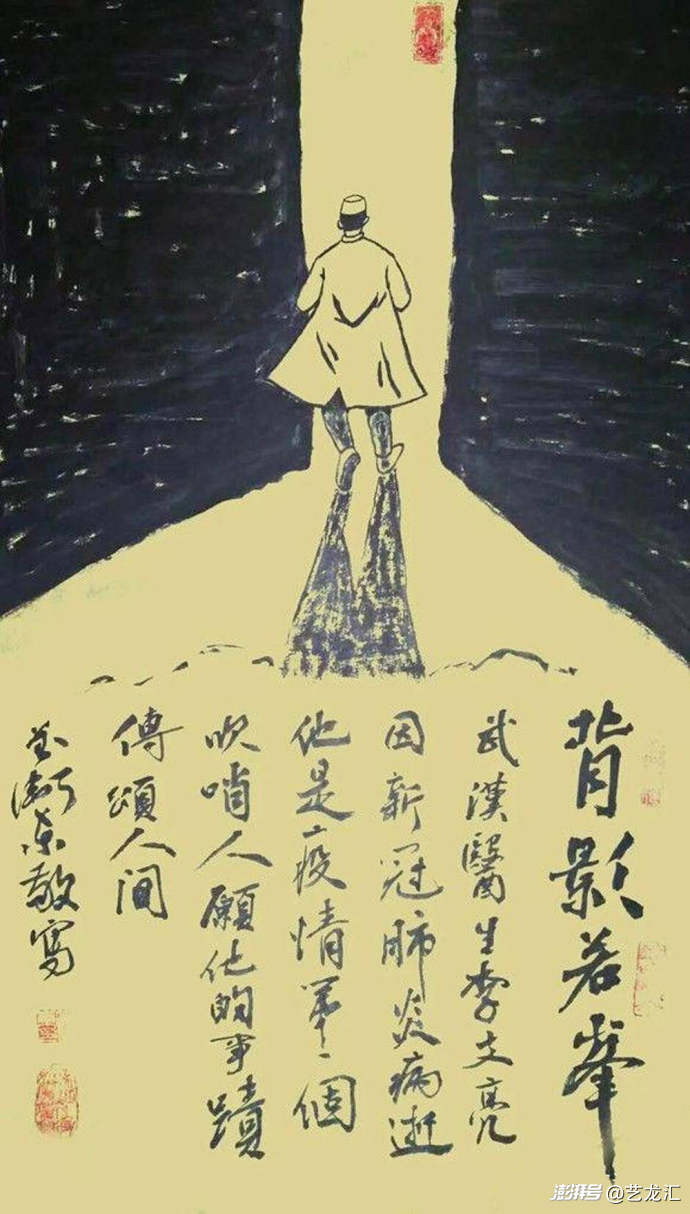 背影若峯
武漢醫生李文亮
因新冠肺炎病逝
他是疫情第一個
吹哨人願他的事蹟
傳頌人间
敬寫
澎湃号@艺龙汇